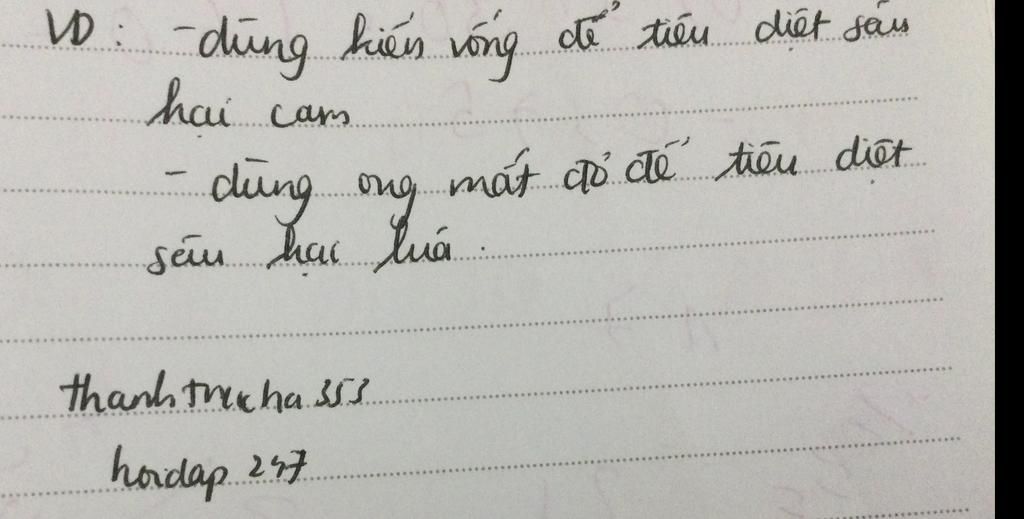 VD: - dùng kiến vống để tiêu diệt sâu
hại cam
- dùng ong mắt đỏ để tiêu diệt
sâu hại lúa.
thanhtrucha353
hoidap247